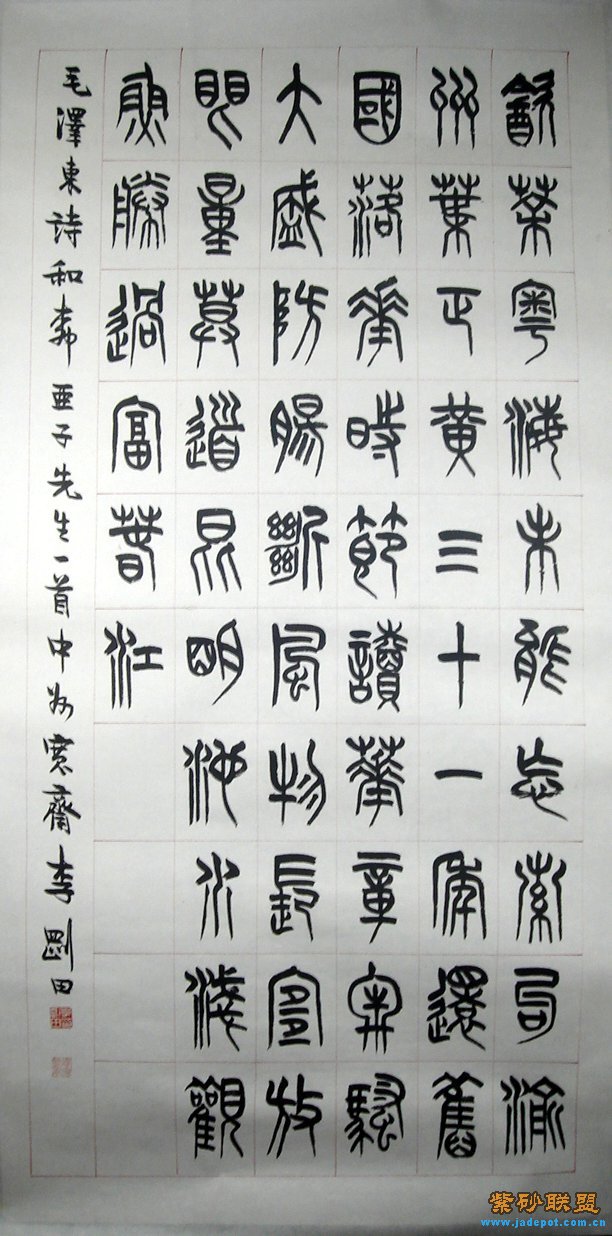 飲茶粤海未能忘索句渝
州葉正黃三十一年還舊
國落華時節讀華章牢騷
大盛防腸斷風物長宜放
眼量莫道昆明池水淺觀
魚勝過富春江
毛澤東詩和柳亞子先生一首中州寬齋李剛田
紫砂联盟
www.jadepot.com.cn